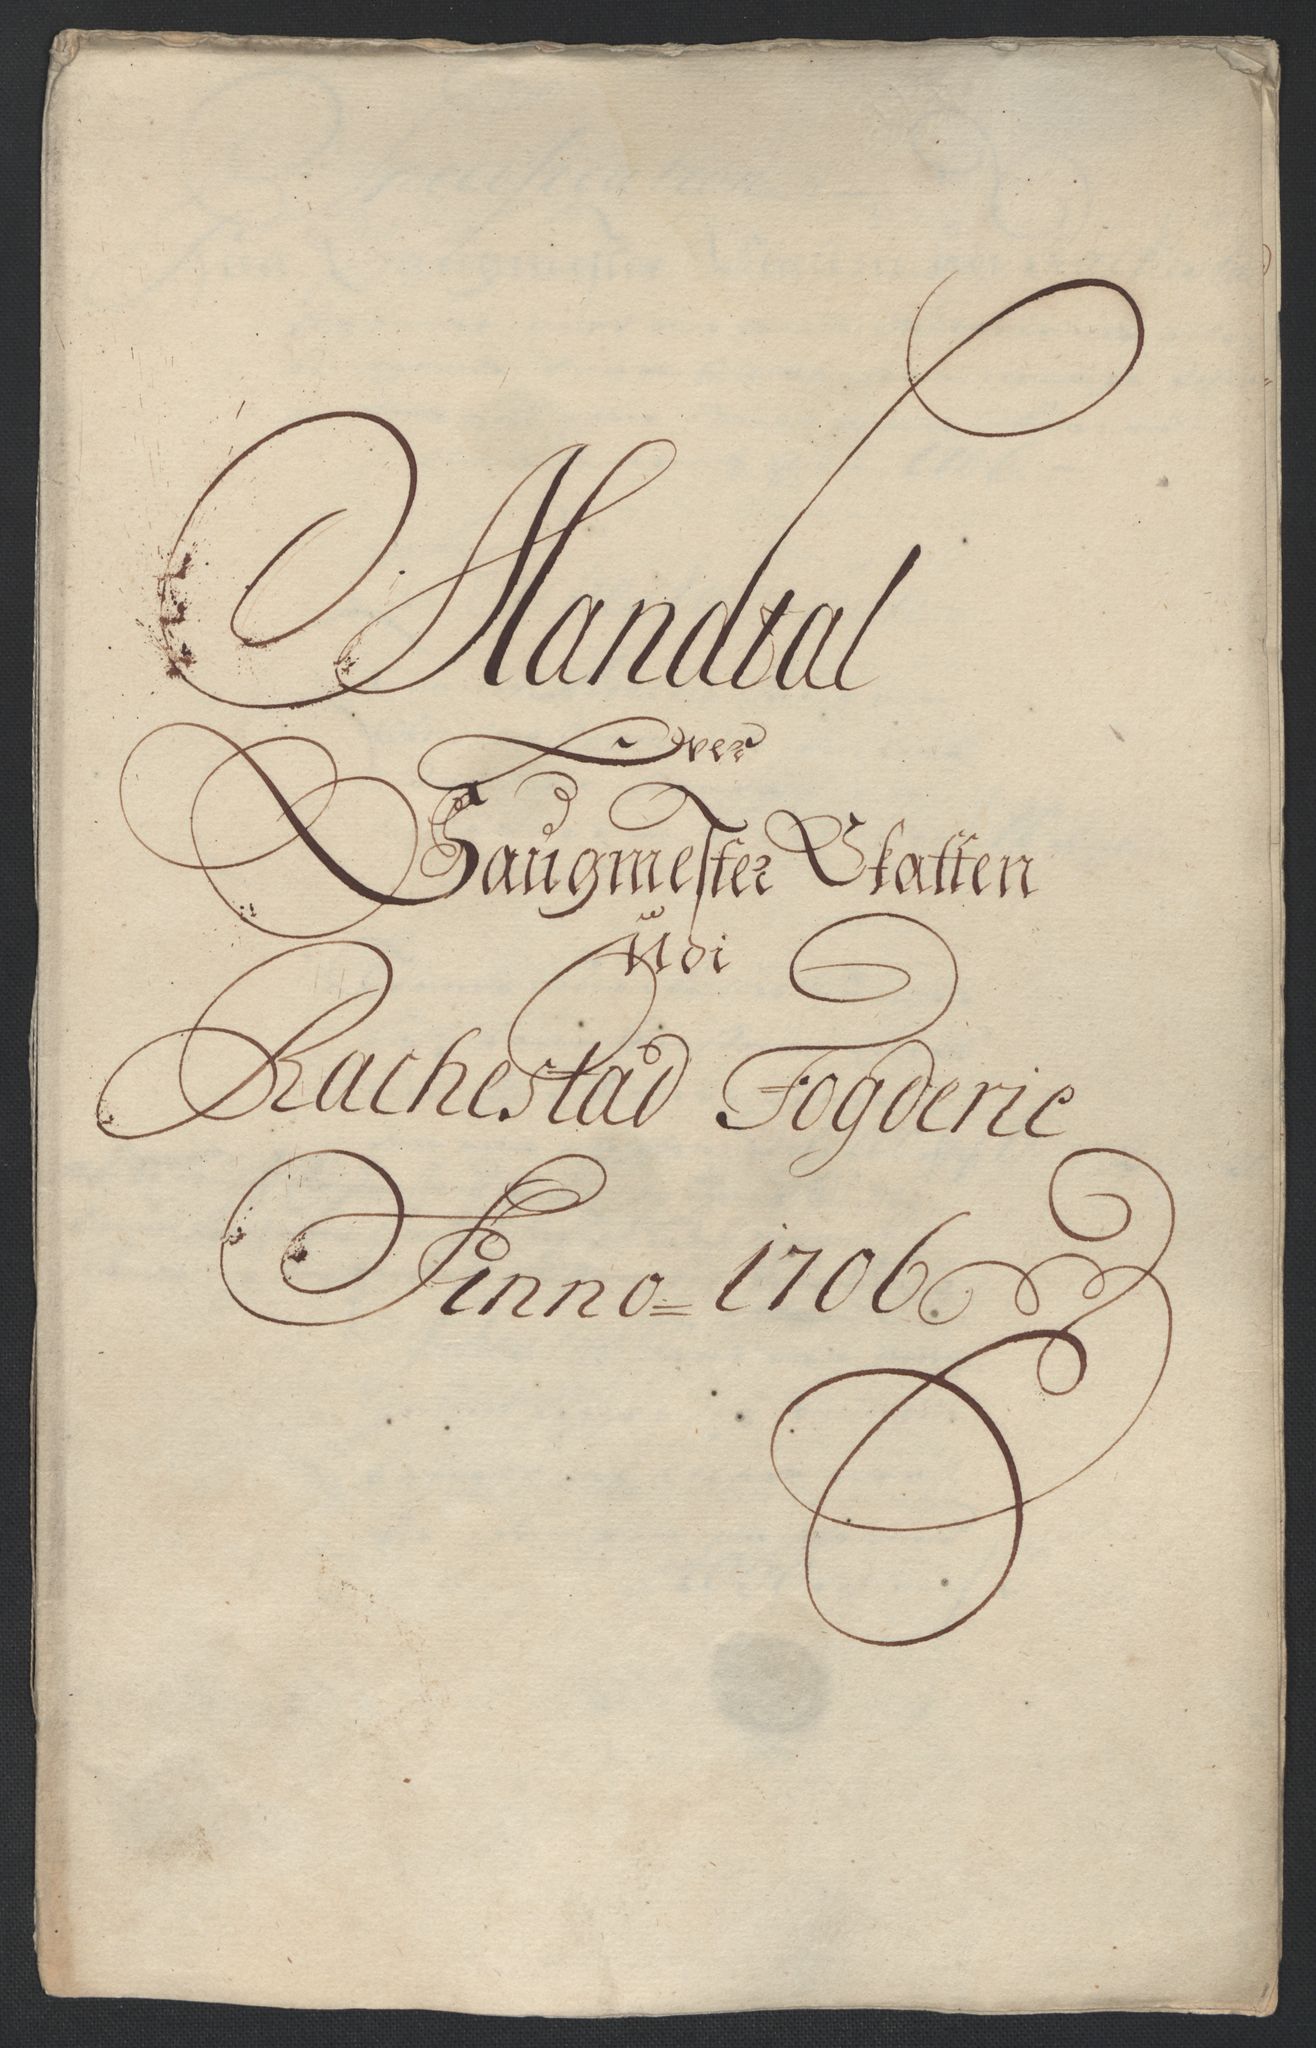 Mandtal
Over
Saugmester Skatten
Udi
Rachestad Fogderie
Anno = 1706